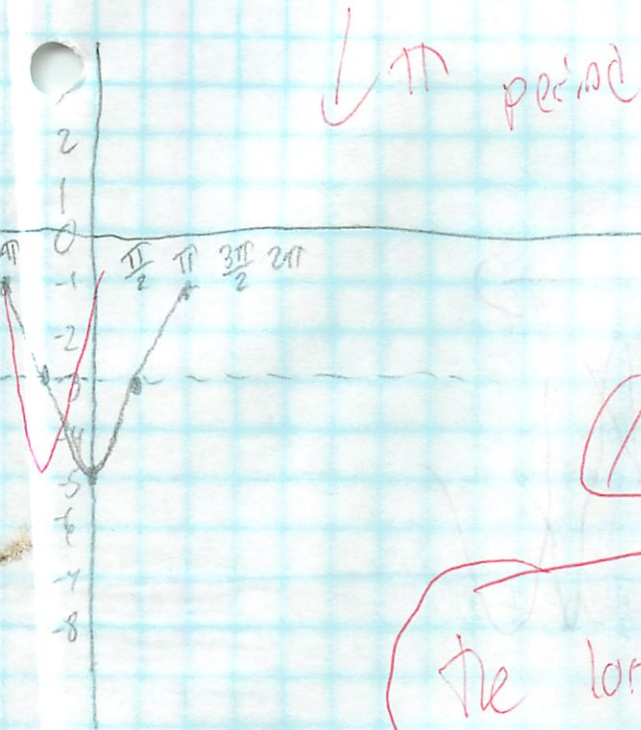 π period
2
1
0
π π/2 π 3π/2 2π
-1
-2
-3
-4
-5
-6
-7
-8
The